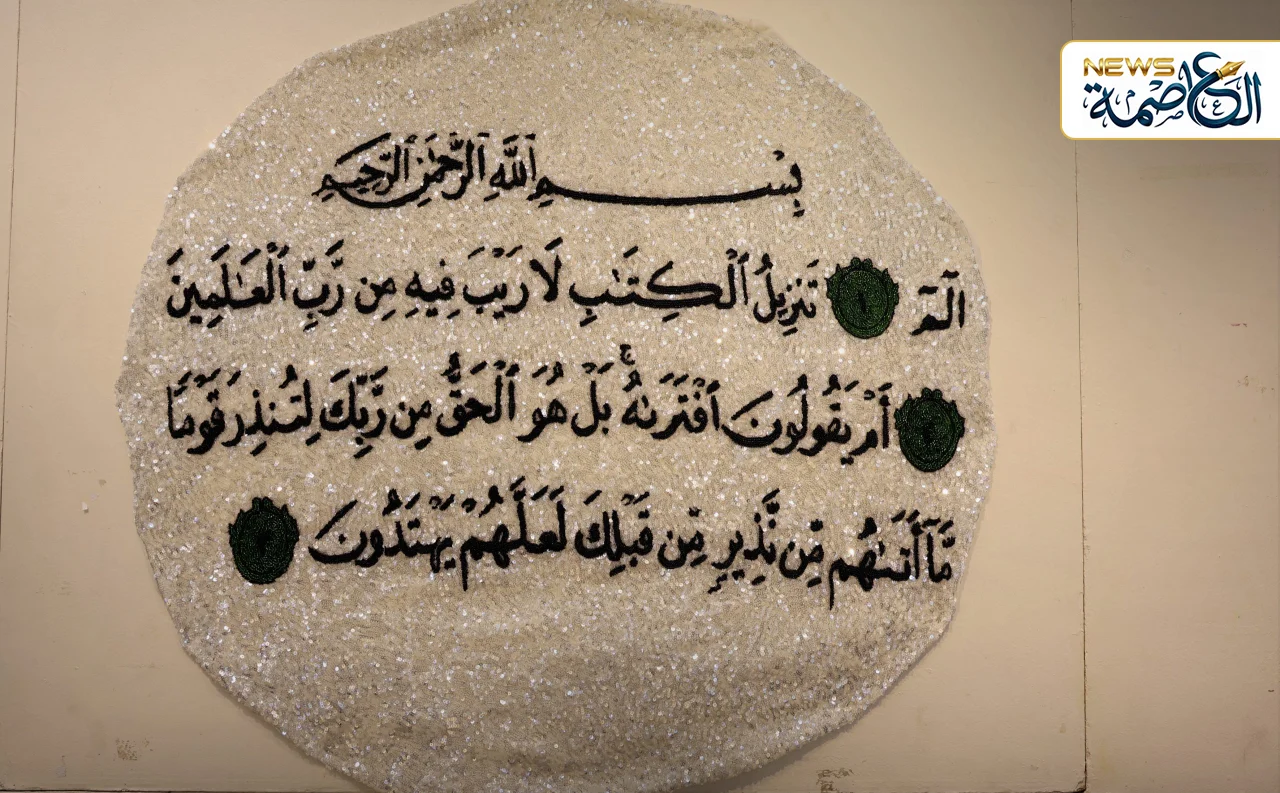 NEWS
العاصمة
بِسْمِ ٱللَّهِ ٱلرَّحْمَٰنِ ٱلرَّحِيمِ
الٓمٓ ١ تَنزِيلُ ٱلْكِتَٰبِ لَا رَيْبَ فِيهِ مِن رَّبِّ ٱلْعَٰلَمِينَ
٢ أَمْ يَقُولُونَ ٱفْتَرَىٰهُ ۚ بَلْ هُوَ ٱلْحَقُّ مِن رَّبِّكَ لِتُنذِرَ قَوْمًا
مَّآ أَتَىٰهُم مِّن نَّذِيرٍ مِّن قَبْلِكَ لَعَلَّهُمْ يَهْتَدُونَ ٣